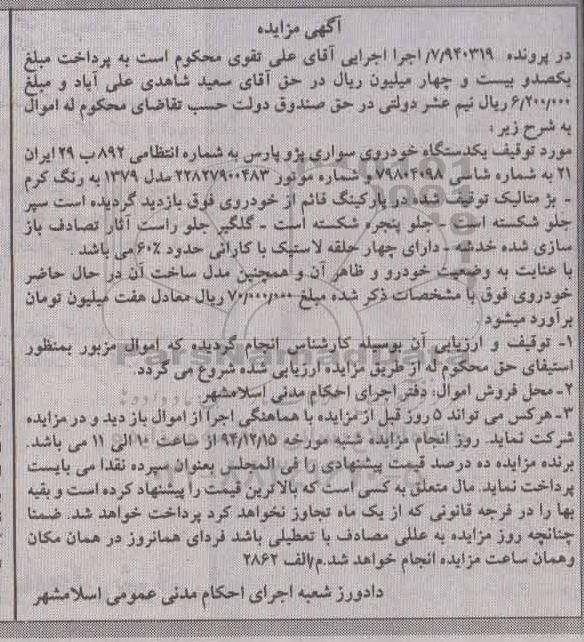 آگهی مزایده
در پرونده ۷/۹۴۰۳۱۹/ اجرا اجرایی آقای علی تقوی محکوم است به پرداخت مبلغ
یکصدو بیست و چهار میلیون ریال در حق آقای سعید شاهدی علی آباد و مبلغ
۶/۲۰۰/۰۰۰ ریال نیم عشر دولتی در حق صندوق دولت حسب تقاضای محکوم له اموال
به شرح زیر :
مورد توقیف یکدستگاه خودروی سواری پژو پارس به شماره انتظامی ۸۹۲ ب ۲۹ ایران
۲۱ به شماره شاسی ۷۹۸۰۴۰۹۸ و شماره موتور ۲۲۸۲۷۹۰۰۴۸۳ مدل ۱۳۷۹ به رنگ کرم
- بژ متالیک توقیف شده در پارکینگ قائم از خودروی فوق بازدید گردیده است سپر
جلو شکسته است - جلو پنجره شکسته است - گلگیر جلو راست آثار تصادف باز
سازی شده خدشه - دارای چهار حلقه لاستیک با کارائی حدود ۶۰٪ می باشد .
با عنایت به وضعیت خودرو و ظاهر آن و همچنین مدل ساخت آن در حال حاضر
خودروی فوق با مشخصات ذکر شده مبلغ ۷۰/۰۰۰/۰۰۰ ریال معادل هفت میلیون تومان
برآورد میشود .
۱- توقیف و ارزیابی آن بوسیله کارشناس انجام گردیده که اموال مزبور بمنظور
استیفای حق محکوم له از طریق مزایده ارزیابی شده شروع می گردد.
۲- محل فروش اموال: دفتر اجرای احکام مدنی اسلامشهر
۳- هرکس می تواند ۵ روز قبل از مزایده با هماهنگی اجرا از اموال باز دید و در مزایده
شرکت نماید. روز انجام مزایده شنبه مورخه ۹۴/۱۲/۱۵ از ساعت ۱۰ الی ۱۱ می باشد.
برنده مزایده ده درصد قیمت پیشنهادی را فی المجلس بعنوان سپرده نقدا می بایست
پرداخت نماید. مال متعلق به کسی است که بالاترین قیمت را پیشنهاد کرده است و بقیه
بها را در فرجه قانونی که از یک ماه تجاوز نخواهد کرد پرداخت خواهد شد. ضمنا
چنانچه روز مزایده به عللی مصادف با تعطیلی باشد فردای همانروز در همان مکان
وهمان ساعت مزایده انجام خواهد شد.م/الف ۲۸۶۲
دادورز شعبه اجرای احکام مدنی عمومی اسلامشهر
ParsNamadData